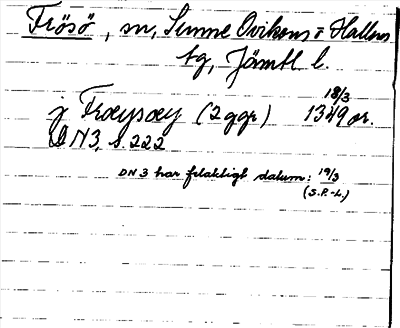 Frösö, sn, Sunne Ovikens o Hallens
tg, Jämtl l.
j Frøysøy (2 ggr) 18/3 1349 or.
DN 3, s. 222
DN 3 har felaktigt datum: 19/3
(S.P.-L.)